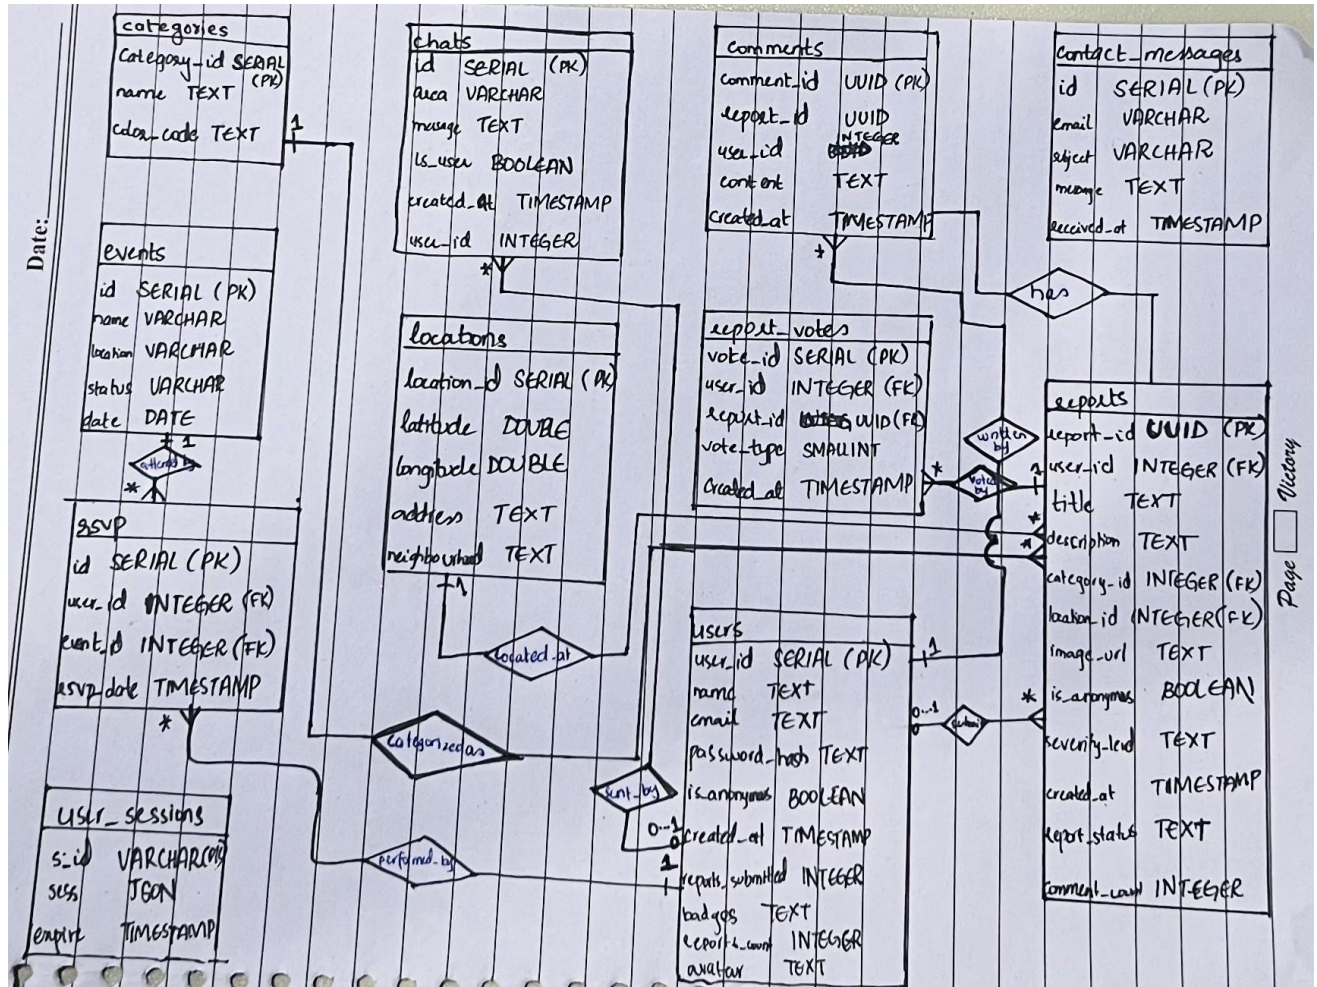 Date:
categories
category_id SERIAL (PK)
name TEXT
color_code TEXT
1
events
id SERIAL (PK)
name VARCHAR
location VARCHAR
status VARCHAR
date DATE
1
attended by
*
rsvp
id SERIAL (PK)
user_id INTEGER (FK)
event_id INTEGER (FK)
rsvp_date TIMESTAMP
*
user_sessions
s_id VARCHAR(PK)
sess JSON
expire TIMESTAMP
chats
id SERIAL (PK)
area VARCHAR
message TEXT
is_user BOOLEAN
created_at TIMESTAMP
user_id INTEGER
*
locations
location_id SERIAL (PK)
latitude DOUBLE
longitude DOUBLE
address TEXT
neighbourhood TEXT
1
located_at
categorized as
performed_by
sent_by
comments
comment_id UUID (PK)
report_id UUID
user_id INTEGER
content TEXT
created_at TIMESTAMP
*
report_votes
vote_id SERIAL (PK)
user_id INTEGER (FK)
report_id UUID (FK)
vote_type SMALLINT
created_at TIMESTAMP
*
written by
voted by
1
users
user_id SERIAL (PK)
name TEXT
email TEXT
password_hash TEXT
is_anonymous BOOLEAN
created_at TIMESTAMP
reports_submitted INTEGER
badges TEXT
reports_count INTEGER
avatar TEXT
1
0...1
0...1
1
contact_messages
id SERIAL (PK)
email VARCHAR
subject VARCHAR
message TEXT
received_at TIMESTAMP
has
reports
report_id UUID (PK)
user_id INTEGER (FK)
title TEXT
description TEXT
category_id INTEGER (FK)
location_id INTEGER (FK)
image_url TEXT
is_anonymous BOOLEAN
severity_level TEXT
created_at TIMESTAMP
report_status TEXT
comment_count INTEGER
*
*
*
Page
Victory